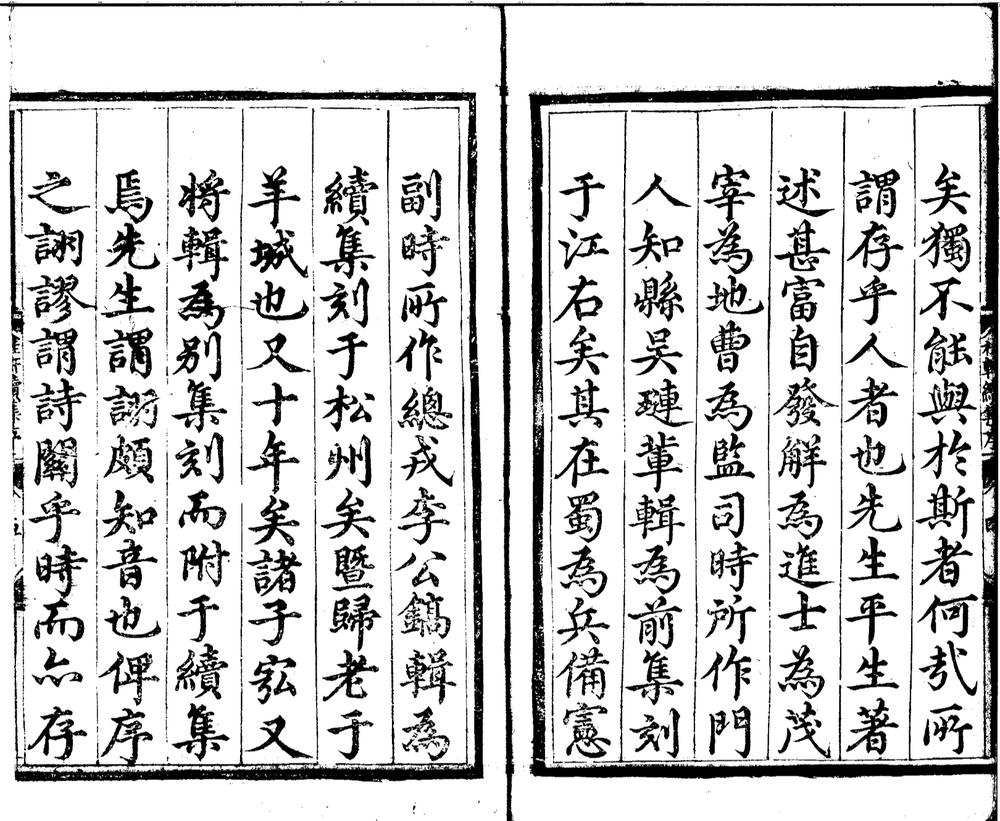 矣獨不能與於斯者何㢤所
謂存乎人者也先生平生著
述甚富自發解為進士為茂
宰為地曹為監司時所作門
人知縣吳璉軰輯為前集刻
于江右矣其在蜀為兵備憲
副時所作總戎李公鎬輯為
續集刻于松州矣暨歸老于
羊城也又十年矣諸子宏又
將輯為别集刻而附于續集
焉先生謂詡頗知音也俾序
之詡謬謂詩關乎時而亦存